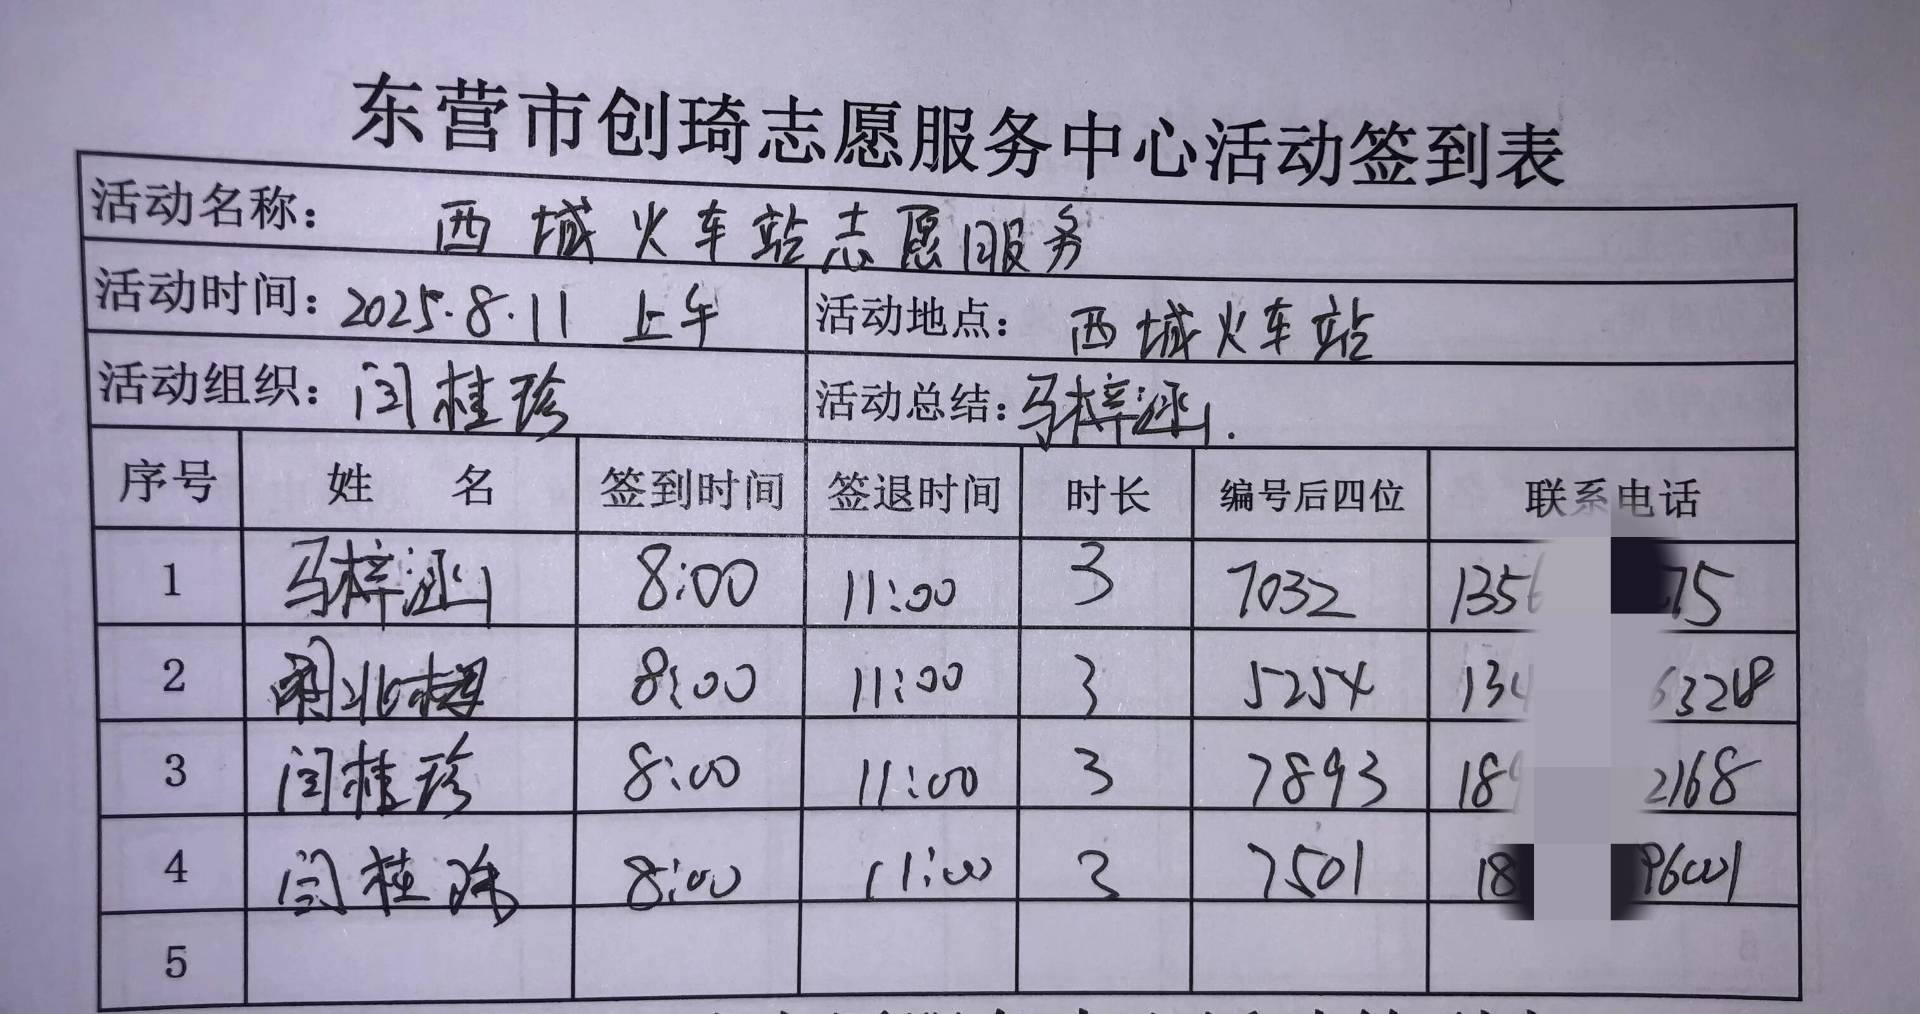 东营市创琦志愿服务中心活动签到表
活动名称： 西城火车站志愿服务
活动时间：2025.8.11 上午 活动地点： 西城火车站
活动组织：闫桂珍 活动总结：马梓涵.
序号 姓 名 签到时间 签退时间 时长 编号后四位 联系电话
1 马梓涵 8:00 11:00 3 7032 135 75
2 8:00 11:00 3 5254 134 6328
3 闫桂珍 8:00 11:00 3 7893 189 2168
4 闫桂 8:00 11:00 3 7501 18 96001
5